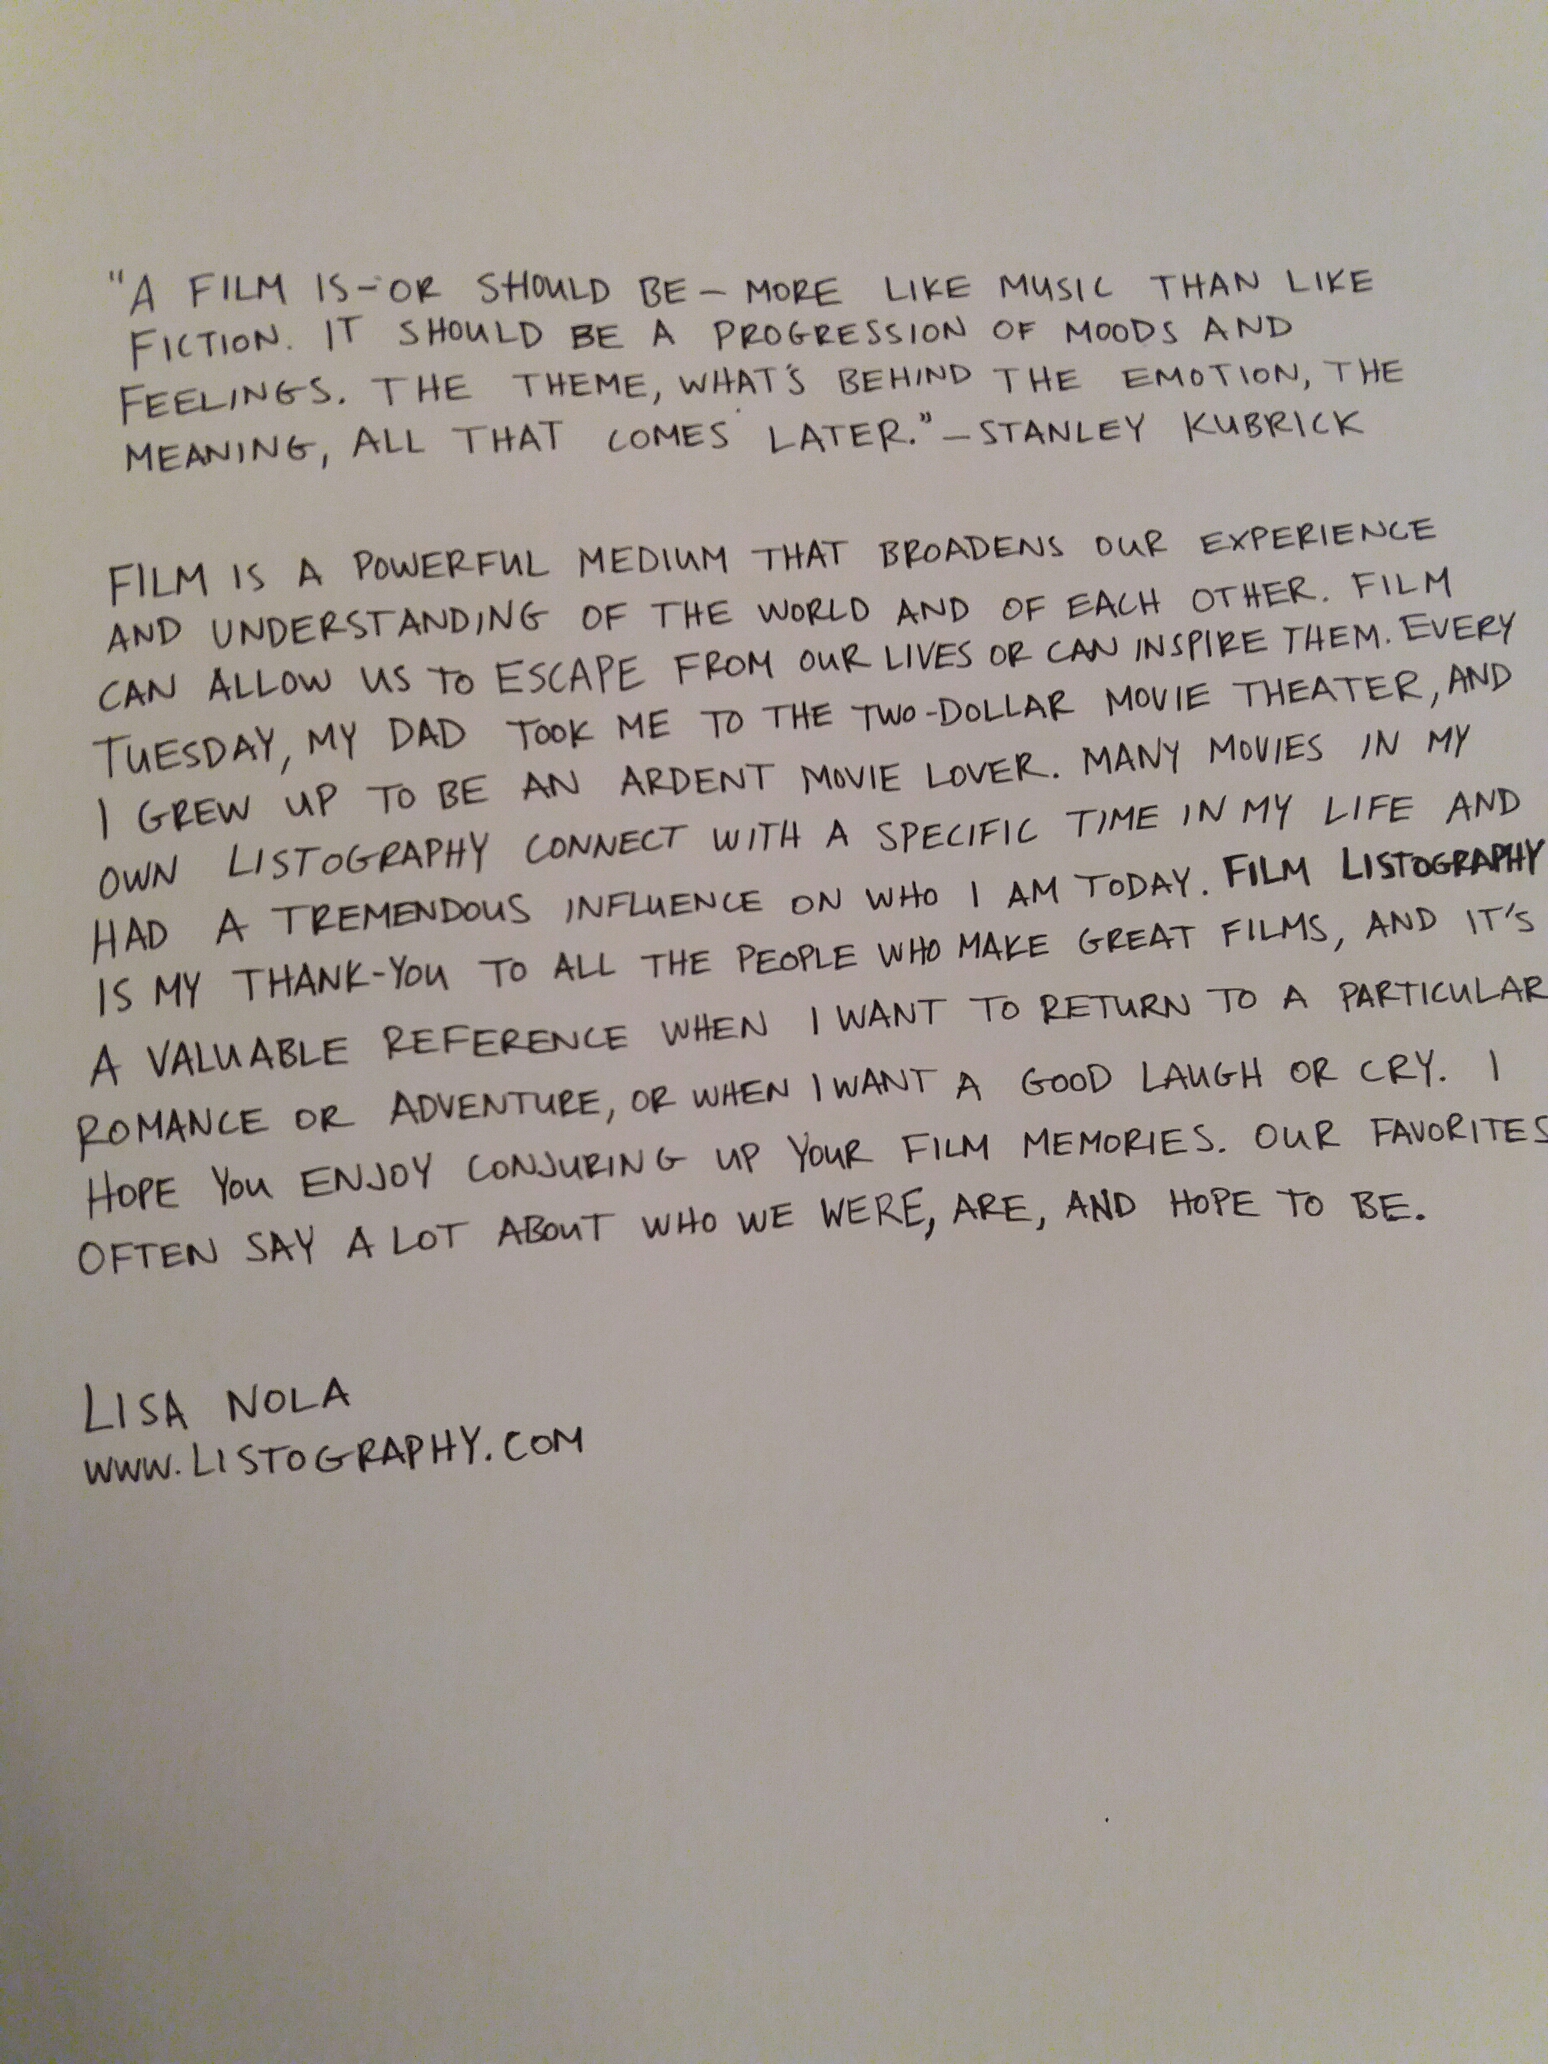 "A FILM IS—OR SHOULD BE—MORE LIKE MUSIC THAN LIKE
FICTION. IT SHOULD BE A PROGRESSION OF MOODS AND
FEELINGS. THE THEME, WHAT'S BEHIND THE EMOTION, THE
MEANING, ALL THAT COMES LATER."—STANLEY KUBRICK
FILM IS A POWERFUL MEDIUM THAT BROADENS OUR EXPERIENCE
AND UNDERSTANDING OF THE WORLD AND OF EACH OTHER. FILM
CAN ALLOW US TO ESCAPE FROM OUR LIVES OR CAN INSPIRE THEM. EVERY
TUESDAY, MY DAD TOOK ME TO THE TWO-DOLLAR MOVIE THEATER, AND
I GREW UP TO BE AN ARDENT MOVIE LOVER. MANY MOVIES IN MY
OWN LISTOGRAPHY CONNECT WITH A SPECIFIC TIME IN MY LIFE AND
HAD A TREMENDOUS INFLUENCE ON WHO I AM TODAY. FILM LISTOGRAPHY
IS MY THANK-YOU TO ALL THE PEOPLE WHO MAKE GREAT FILMS, AND IT'S
A VALUABLE REFERENCE WHEN I WANT TO RETURN TO A PARTICULAR
ROMANCE OR ADVENTURE, OR WHEN I WANT A GOOD LAUGH OR CRY. I
HOPE YOU ENJOY CONJURING UP YOUR FILM MEMORIES. OUR FAVORITES
OFTEN SAY A LOT ABOUT WHO WE WERE, ARE, AND HOPE TO BE.
LISA NOLA
WWW.LISTOGRAPHY.COM